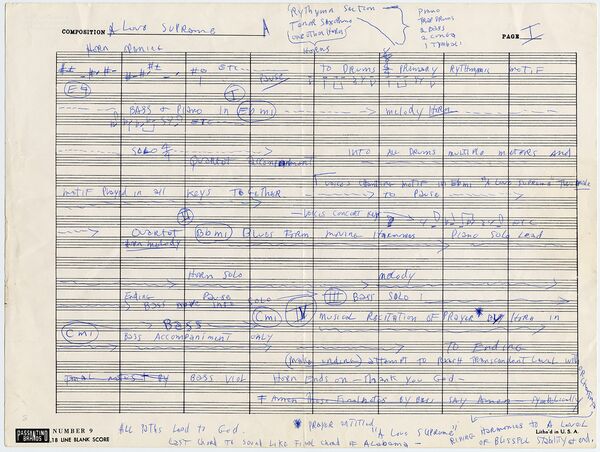 COMPOSITION A Love Supreme
Rythymn Section
Tenor Saxophone
one other horn
Horns
Piano
2 Bass
2 Conga
1 Tymbali
PAGE I
Horn
ETC
Pause
TO DRUMS Primary Rythymnic motif
E9
I
Bass + Piano in Ebmi
melody Horn
ETC
Solo
Quartet accompaniment
into all Drums multiple meters and
voices chanting motif in Ebmi "A Love Supreme"
motif played in all keys Together
to Pause
II
Voices concert key
ETC
Quartet Bbmi Blues Form moving Harmonies Piano Solo Lead
Horn melody
Horn Solo
melody
Ending Pause
Bass move into Solo
III Bass Solo
Cmi
IV
musical Recitation OF Prayer * by Horn in
Cmi
Bass
Bass Accompaniment only
To Ending
(make ending) attempt to Reach transcendent Level with
Final notes by Bass Viol Horn Ends on - Thank you God -
Amen These Final notes by Bass say Amen - symbolically
NUMBER 9
18 LINE BLANK SCORE
PASSANTINO BRANDS
All paths Lead to God.
* Prayer entitled "A Love Supreme"
Last chord to sound like final chord of Alabama -
Rising Harmonies to A Level
of Blissful Stability at end.
Litho'd in U.S.A.